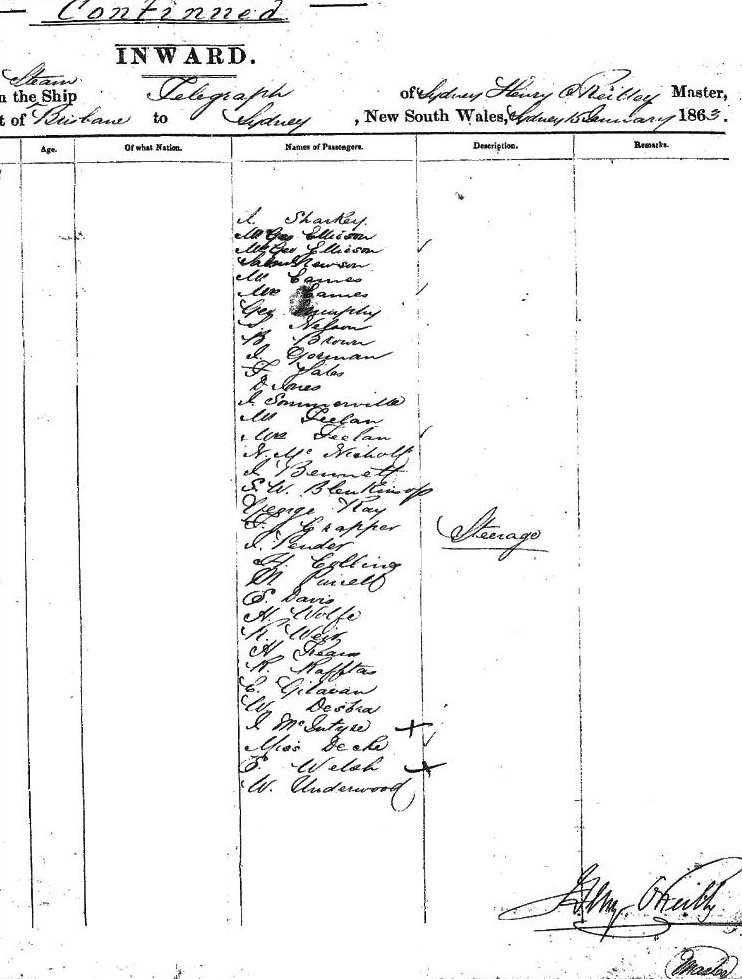 Continued
INWARD.
Steam
n the Ship Telegraph of Sydney Henry O'Reilley Master,
t of Brisbane to Sydney, New South Wales, Sydney 15 January 1863.
Age. Of what Nation. Names of Passengers. Description. Remarks.
Sharkey
Mr Geo Ellison
Mrs Geo Ellisson
Newson
Mr Eames
Mrs Eames
Geo Murphy
Nelson
B Brown
J. Gorman
F. Sales
D Jones
J. Sommerville
Mr Feelan
Mrs Feelan
N. Mc Nicholl
J Bennett
S. W. Blenkinsop
George Kay
F. Grapper Steerage
J. Pender
H. Colling
M Purcell
E. Davis
H. Wolfe
R. Weir
H
R. Rafftas
E. Gilavan
W.
J McIntyre
Miss Deche
E. Welsh
W. Underwood
Henry O'Reilly
Master